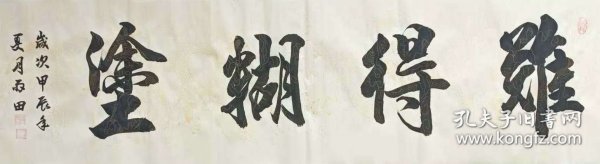 難得糊塗
歲次甲辰年
夏月啟田
孔夫子旧书网